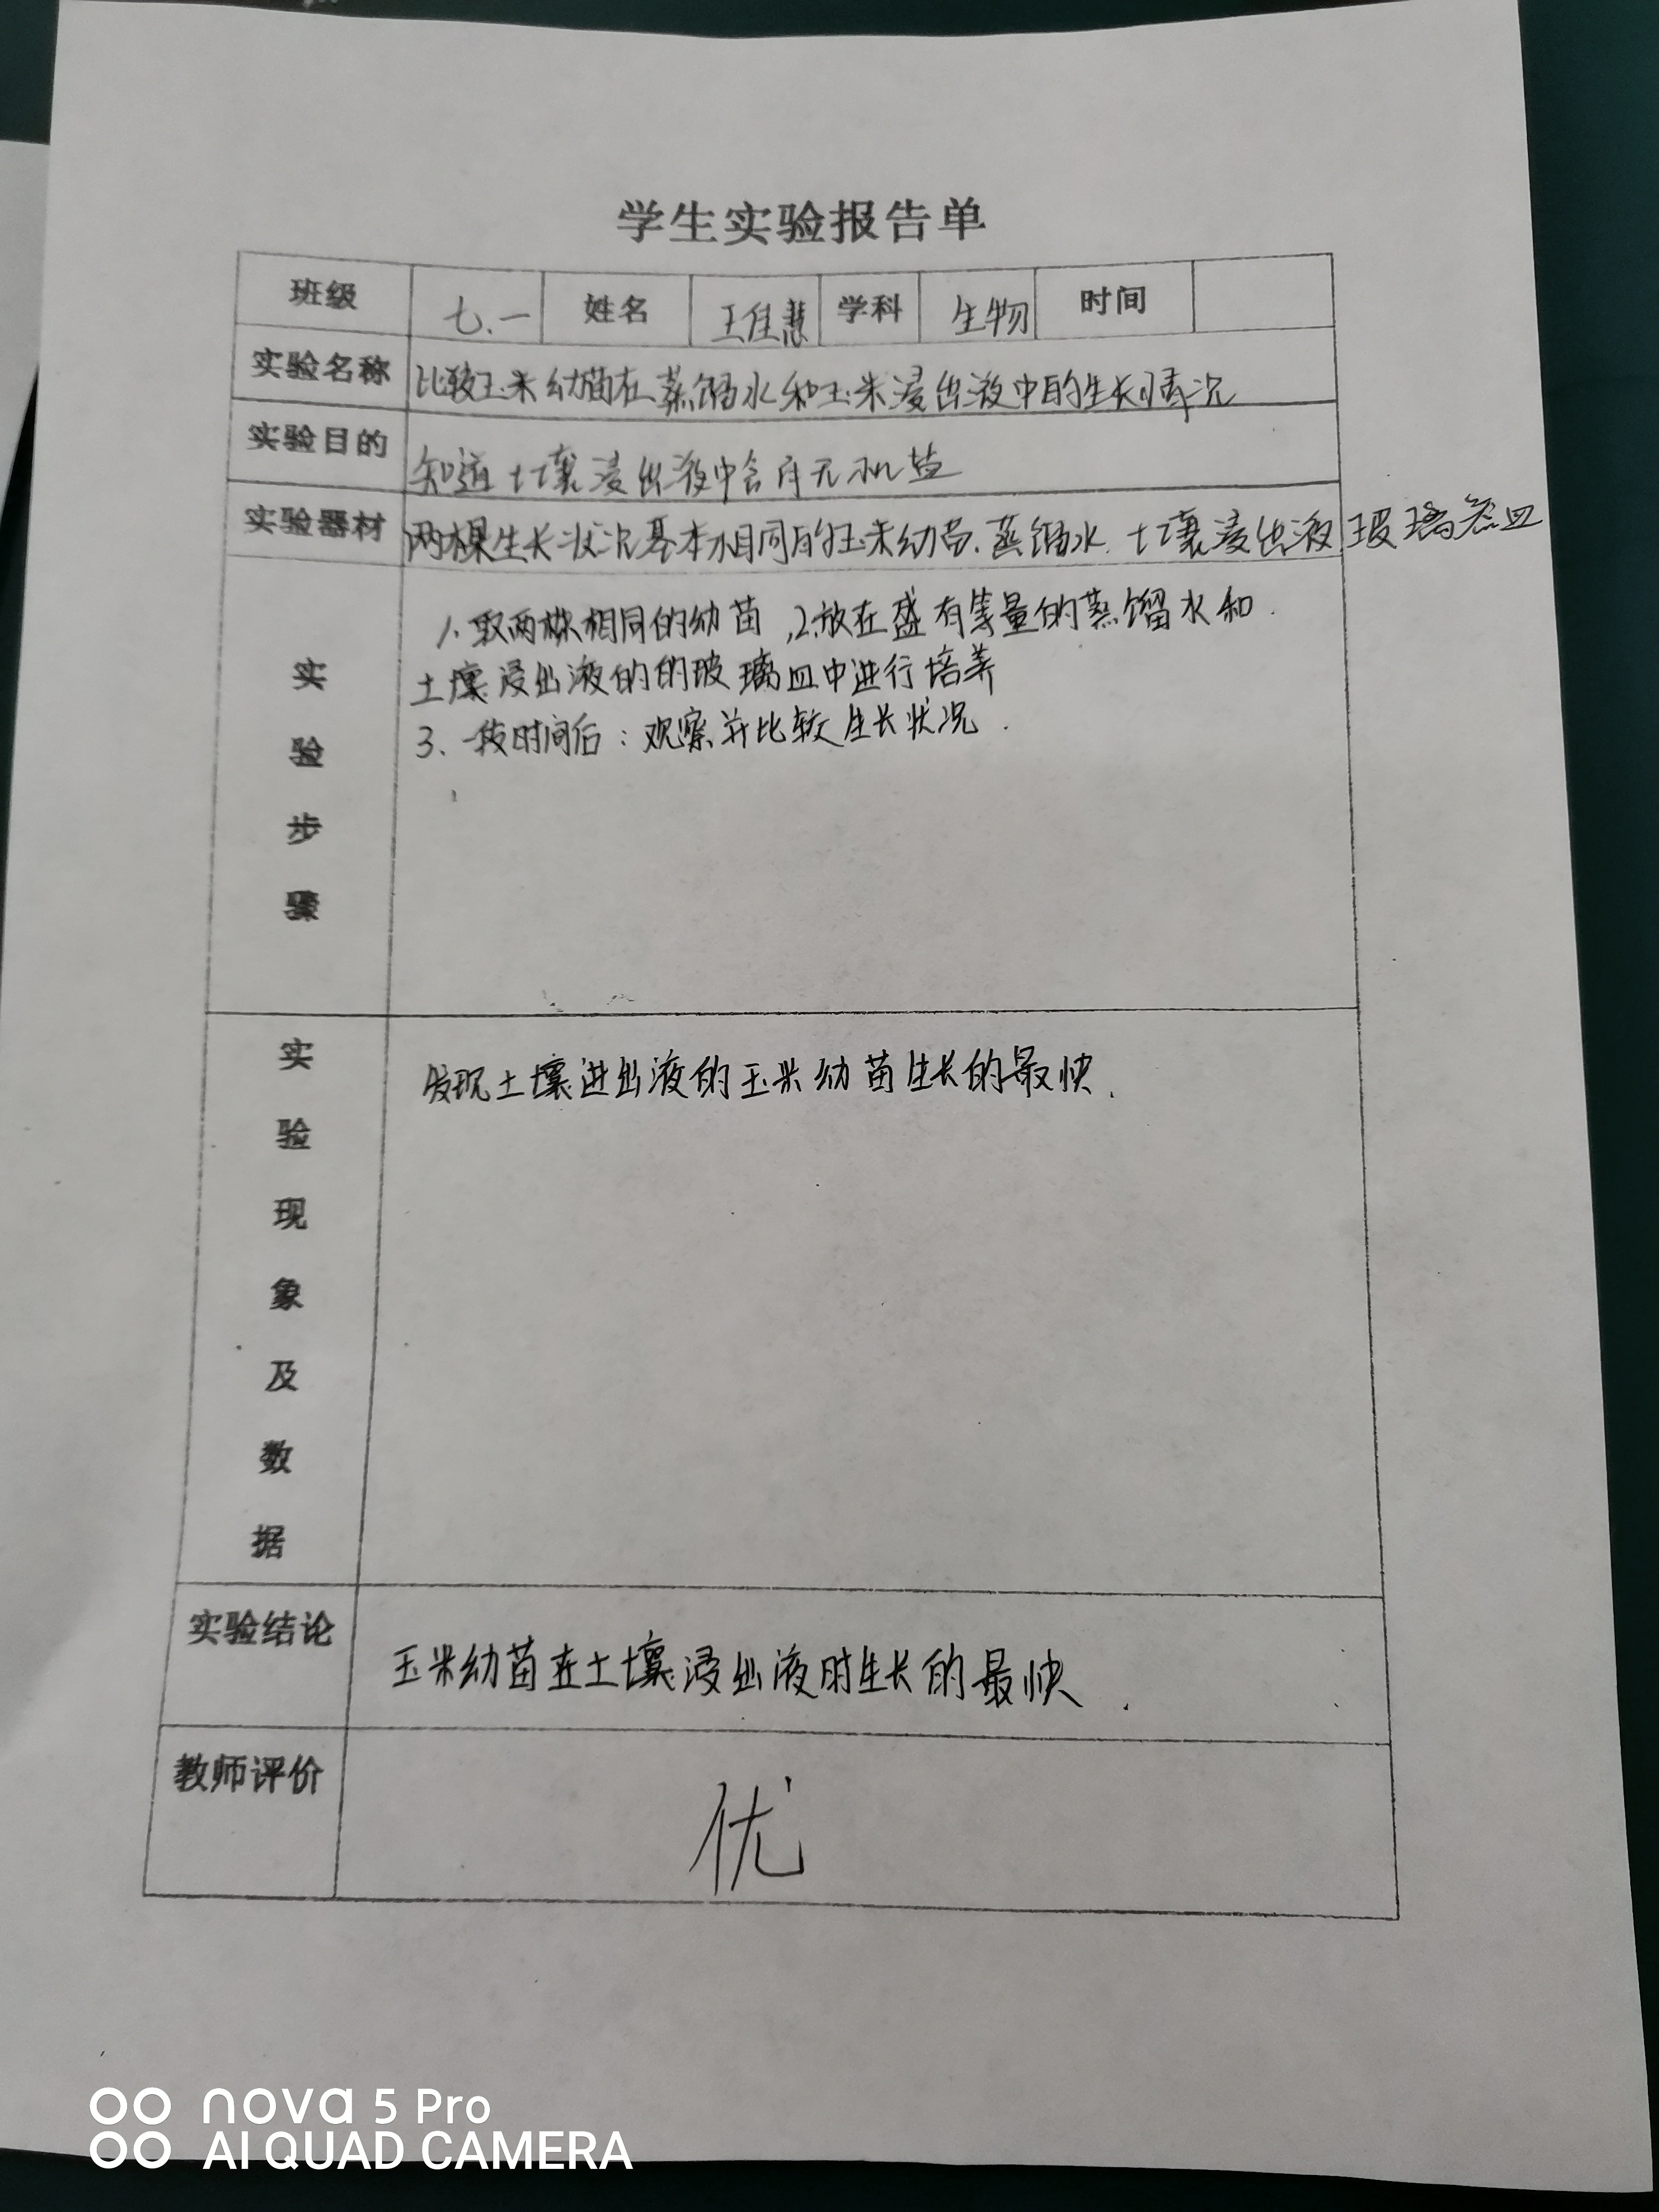 学生实验报告单
班级 七.一 姓名 王佳慧 学科 生物 时间
实验名称 比较玉米幼苗在蒸馏水和玉米浸出液中的生长情况
实验目的 知道土壤浸出液中含有无机盐
实验器材 两棵生长状况基本相同的玉米幼苗.蒸馏水.土壤浸出液 玻璃器皿
实验步骤
1.取两株相同的幼苗,2.放在盛有等量的蒸馏水和
土壤浸出液的的玻璃皿中进行培养
3.一段时间后:观察并比较生长状况.
实验现象及数据
发现土壤进出液的玉米幼苗生长的最快.
实验结论 玉米幼苗在土壤浸出液时生长的最快.
教师评价 优
nova 5 Pro
AI QUAD CAMERA